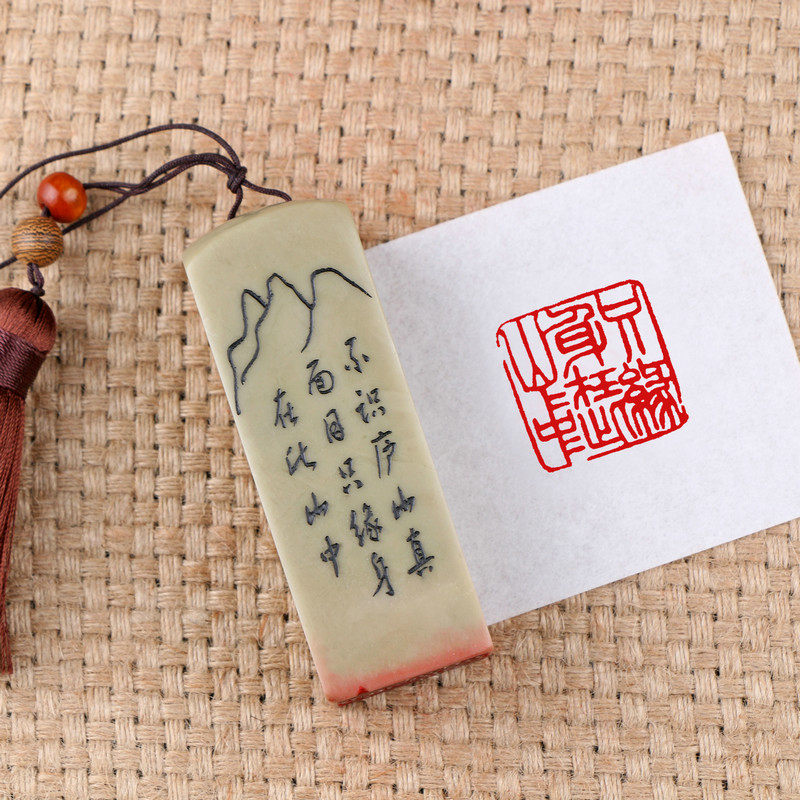 不识庐山真
面目只缘身
在此山中
只缘
身在此
山中